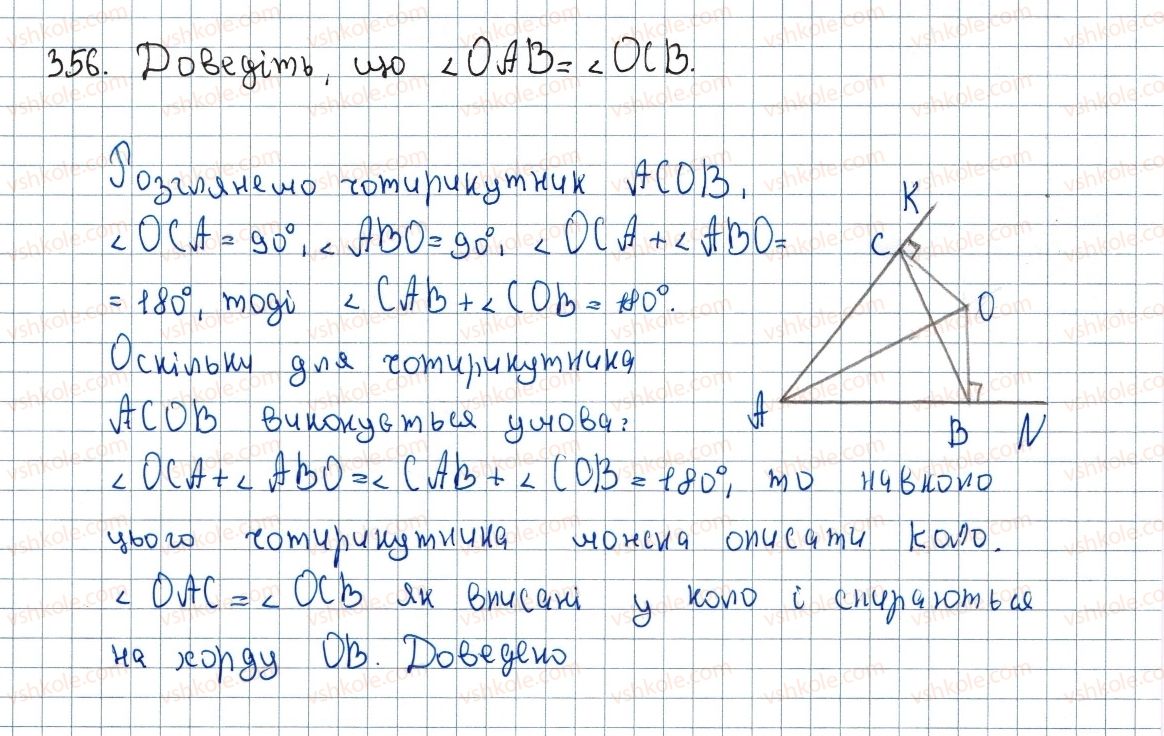 356. Доведіть, що ∠OAB = ∠OCB.
Розглянемо чотирикутник ACOB,
∠OCA = 90°, ∠ABO = 90°, ∠OCA + ∠ABO =
= 180°, тоді ∠CAB + ∠COB = 180°.
Оскільки для чотирикутника
ACOB виконується умова:
∠OCA + ∠ABO = ∠CAB + ∠COB = 180°, то навколо
цього чотирикутника можна описати коло.
∠OAC = ∠OCB як вписані у коло і спираються
на хорду OB. Доведено
K
C
O
A
B
N
vshkole.com